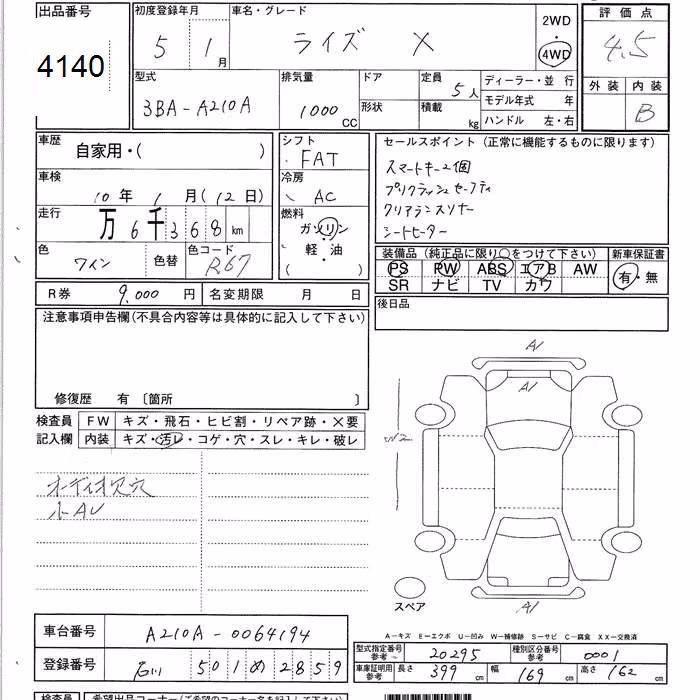 出品番号
4140
初度登録年月
5 1月
車名・グレード
ライズ X
2WD
・
4WD
評価点
4.5
型式
3BA-A210A
排気量
1000 CC
ドア
形状
定員
5人
積載
kg
ディーラー・並 行
モデル年式 年
ハンドル 左・右
外装 内装
B
車歴
自家用・( )
シフト
FAT
セールスポイント (正常に機能するものに限ります)
スマートキー2個
プリクラッシュセーフティ
クリアランスソナー
シートヒーター
車検
10年 1月(12日)
冷房
AC
走行
万6千368km
燃料
ガソリン
・
軽・油
( )
色
ワイン
色替
色コード
R67
装備品 (純正品に限り○をつけて下さい)
新車保証書
PS PW ABS エアB AW
SR ナビ TV カワ
有・無
R券 9.000 円
名変期限 月 日
後日品
注意事項申告欄(不具合内容等は具体的に記入して下さい)
修復歴 有 〔箇所 〕
検査員
記入欄
FW キズ・飛石・ヒビ割・リペア跡・X要
内装 キズ・汚レ・コゲ・穴・スレ・キレ・破レ
オーディオ穴
小AU
A1
A1
W2
A1
スペア
A-キズ E-エクボ U-凹み W-補修跡 S-サビ C-腐食 XX-交換済
車台番号 A210A-0064194
登録番号 石川 501 め 2859
型式指定番号
参考
20295
種別区分番号
参考
0001
車庫証明用
参考
長さ 399 cm 幅 169 cm 高さ 162 cm
検査員
希望出品コーナー(ご希望のコーナー名を記入して下さい)